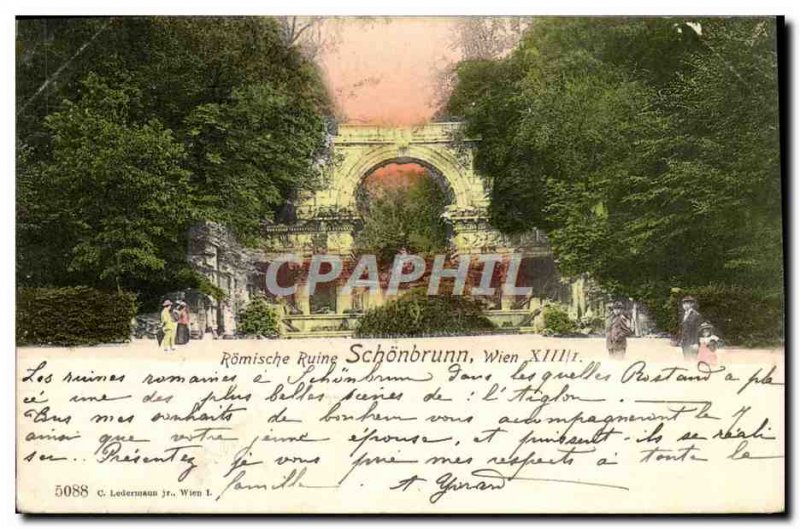 CPAPHIL
Römische Ruine Schönbrunn, Wien XIII/1.
Les ruines romaines à Schönbrunn dans lesquelles Rostand a pla
cé une des plus belles scènes de : l'Aiglon.
Tous mes souhaits de bonheur vous accompagneront le 7
ainsi que votre jeune épouse, et puissent-ils se réali
ser.. Présentez, je vous prie mes respects à toute la
famille.
5088 C. Ledermann jr., Wien I.